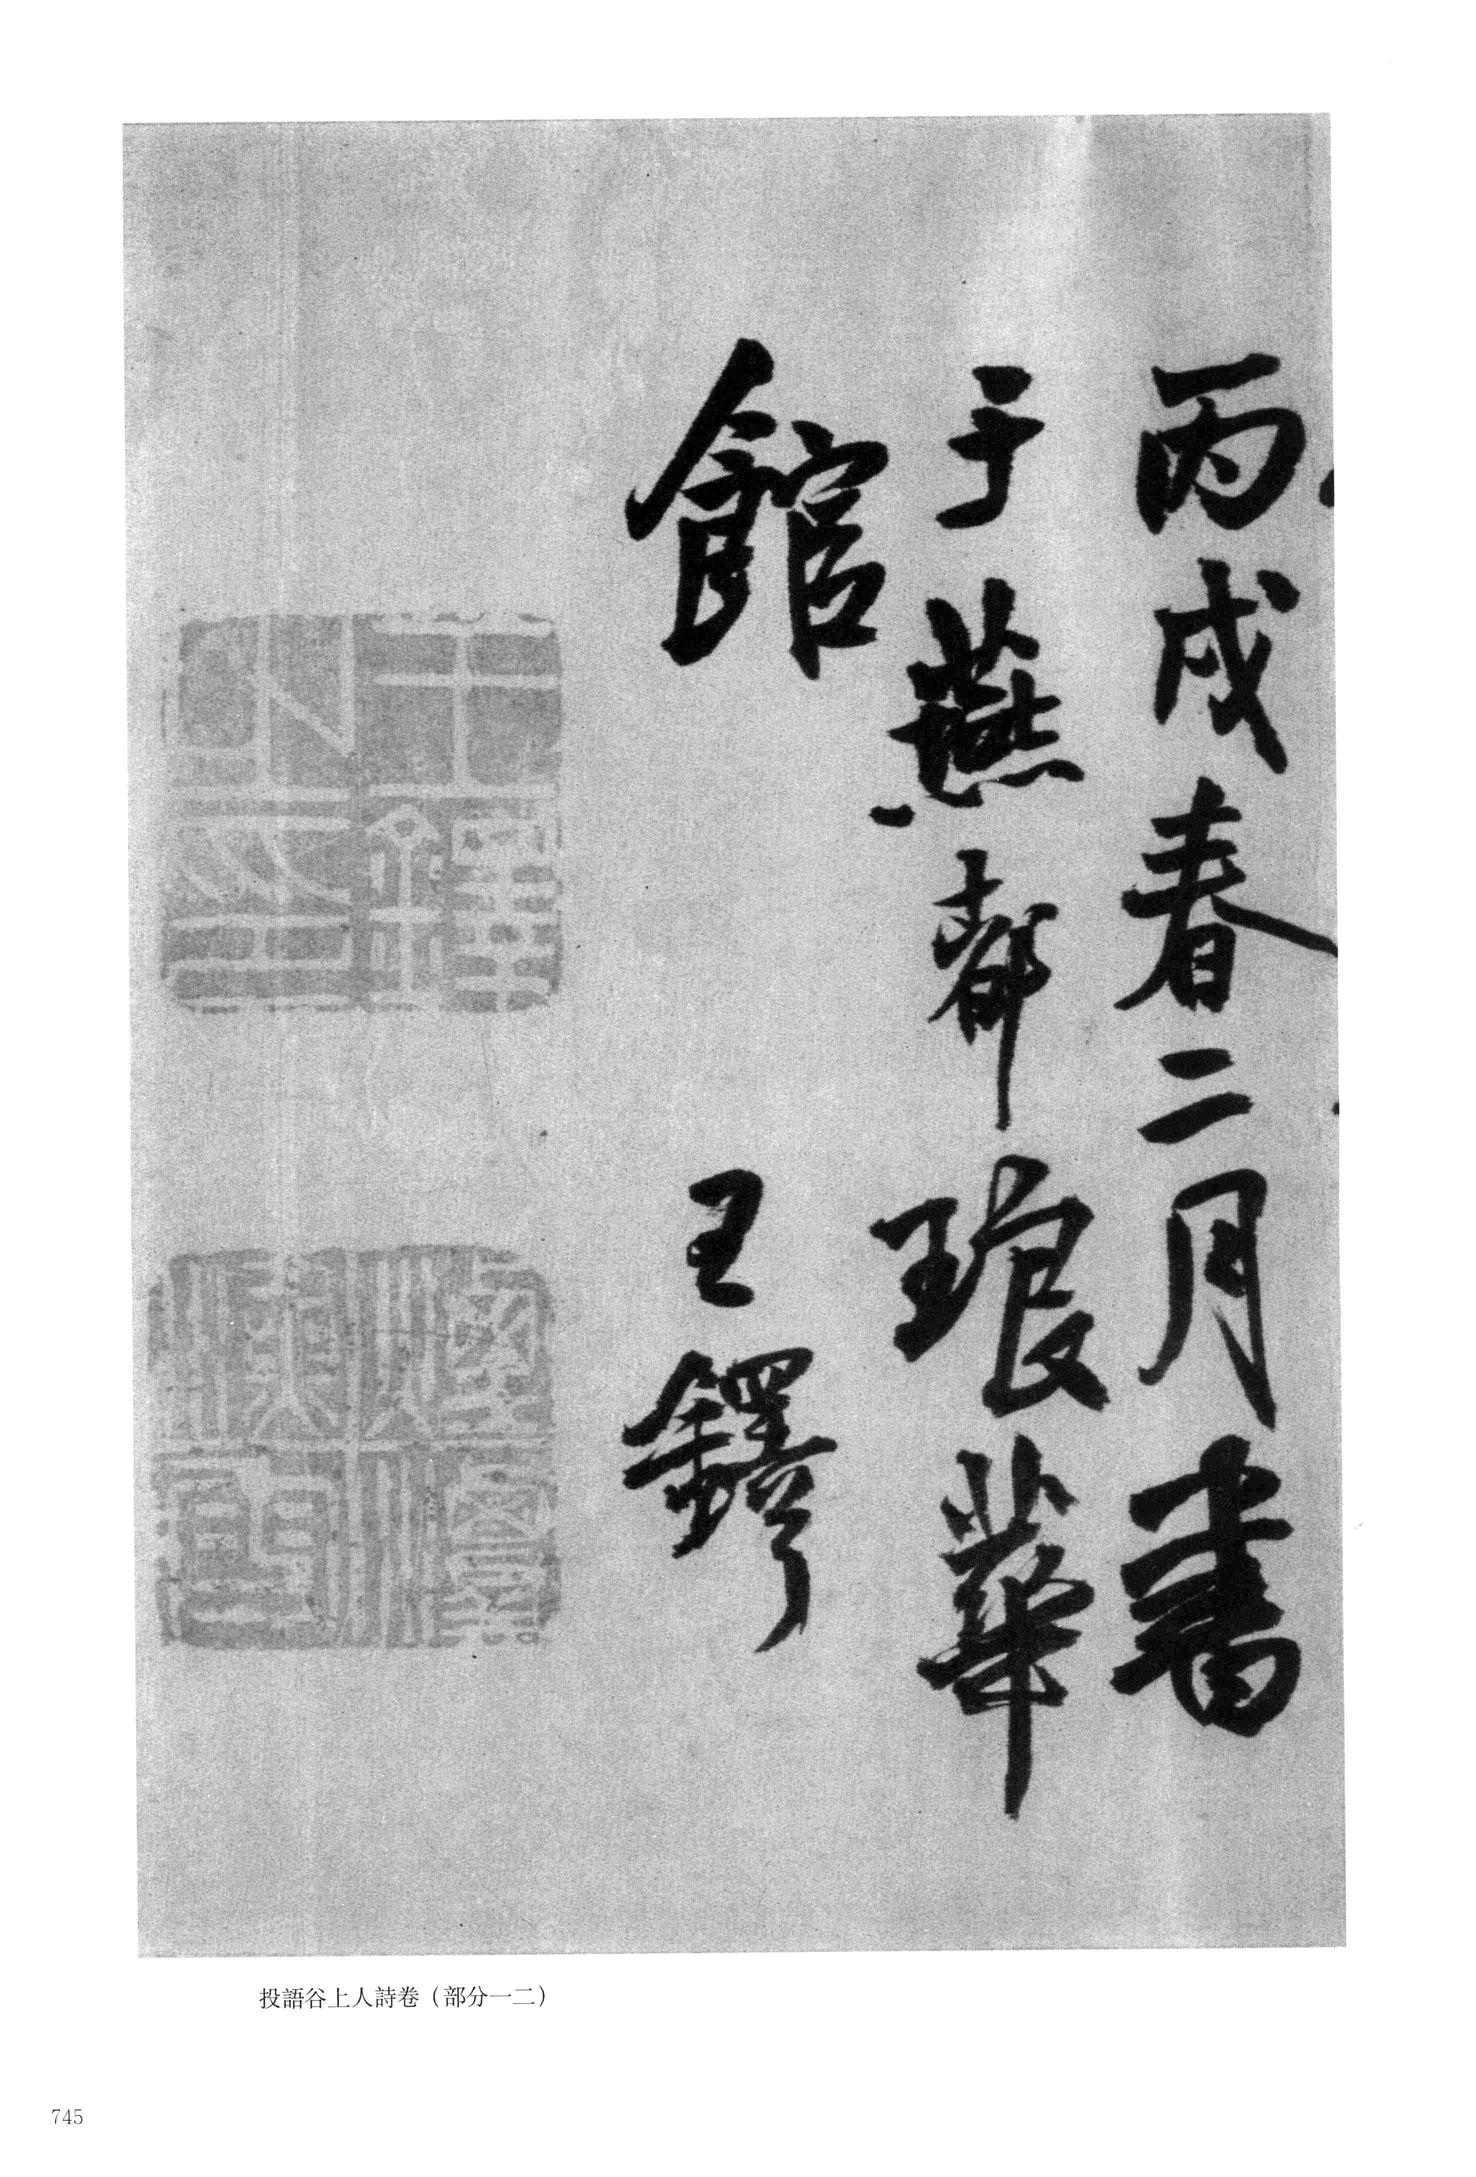 丙戌春二月書
于燕都琅華
館
王鐸
王鐸之印
投語谷上人詩卷（部分一二）
745